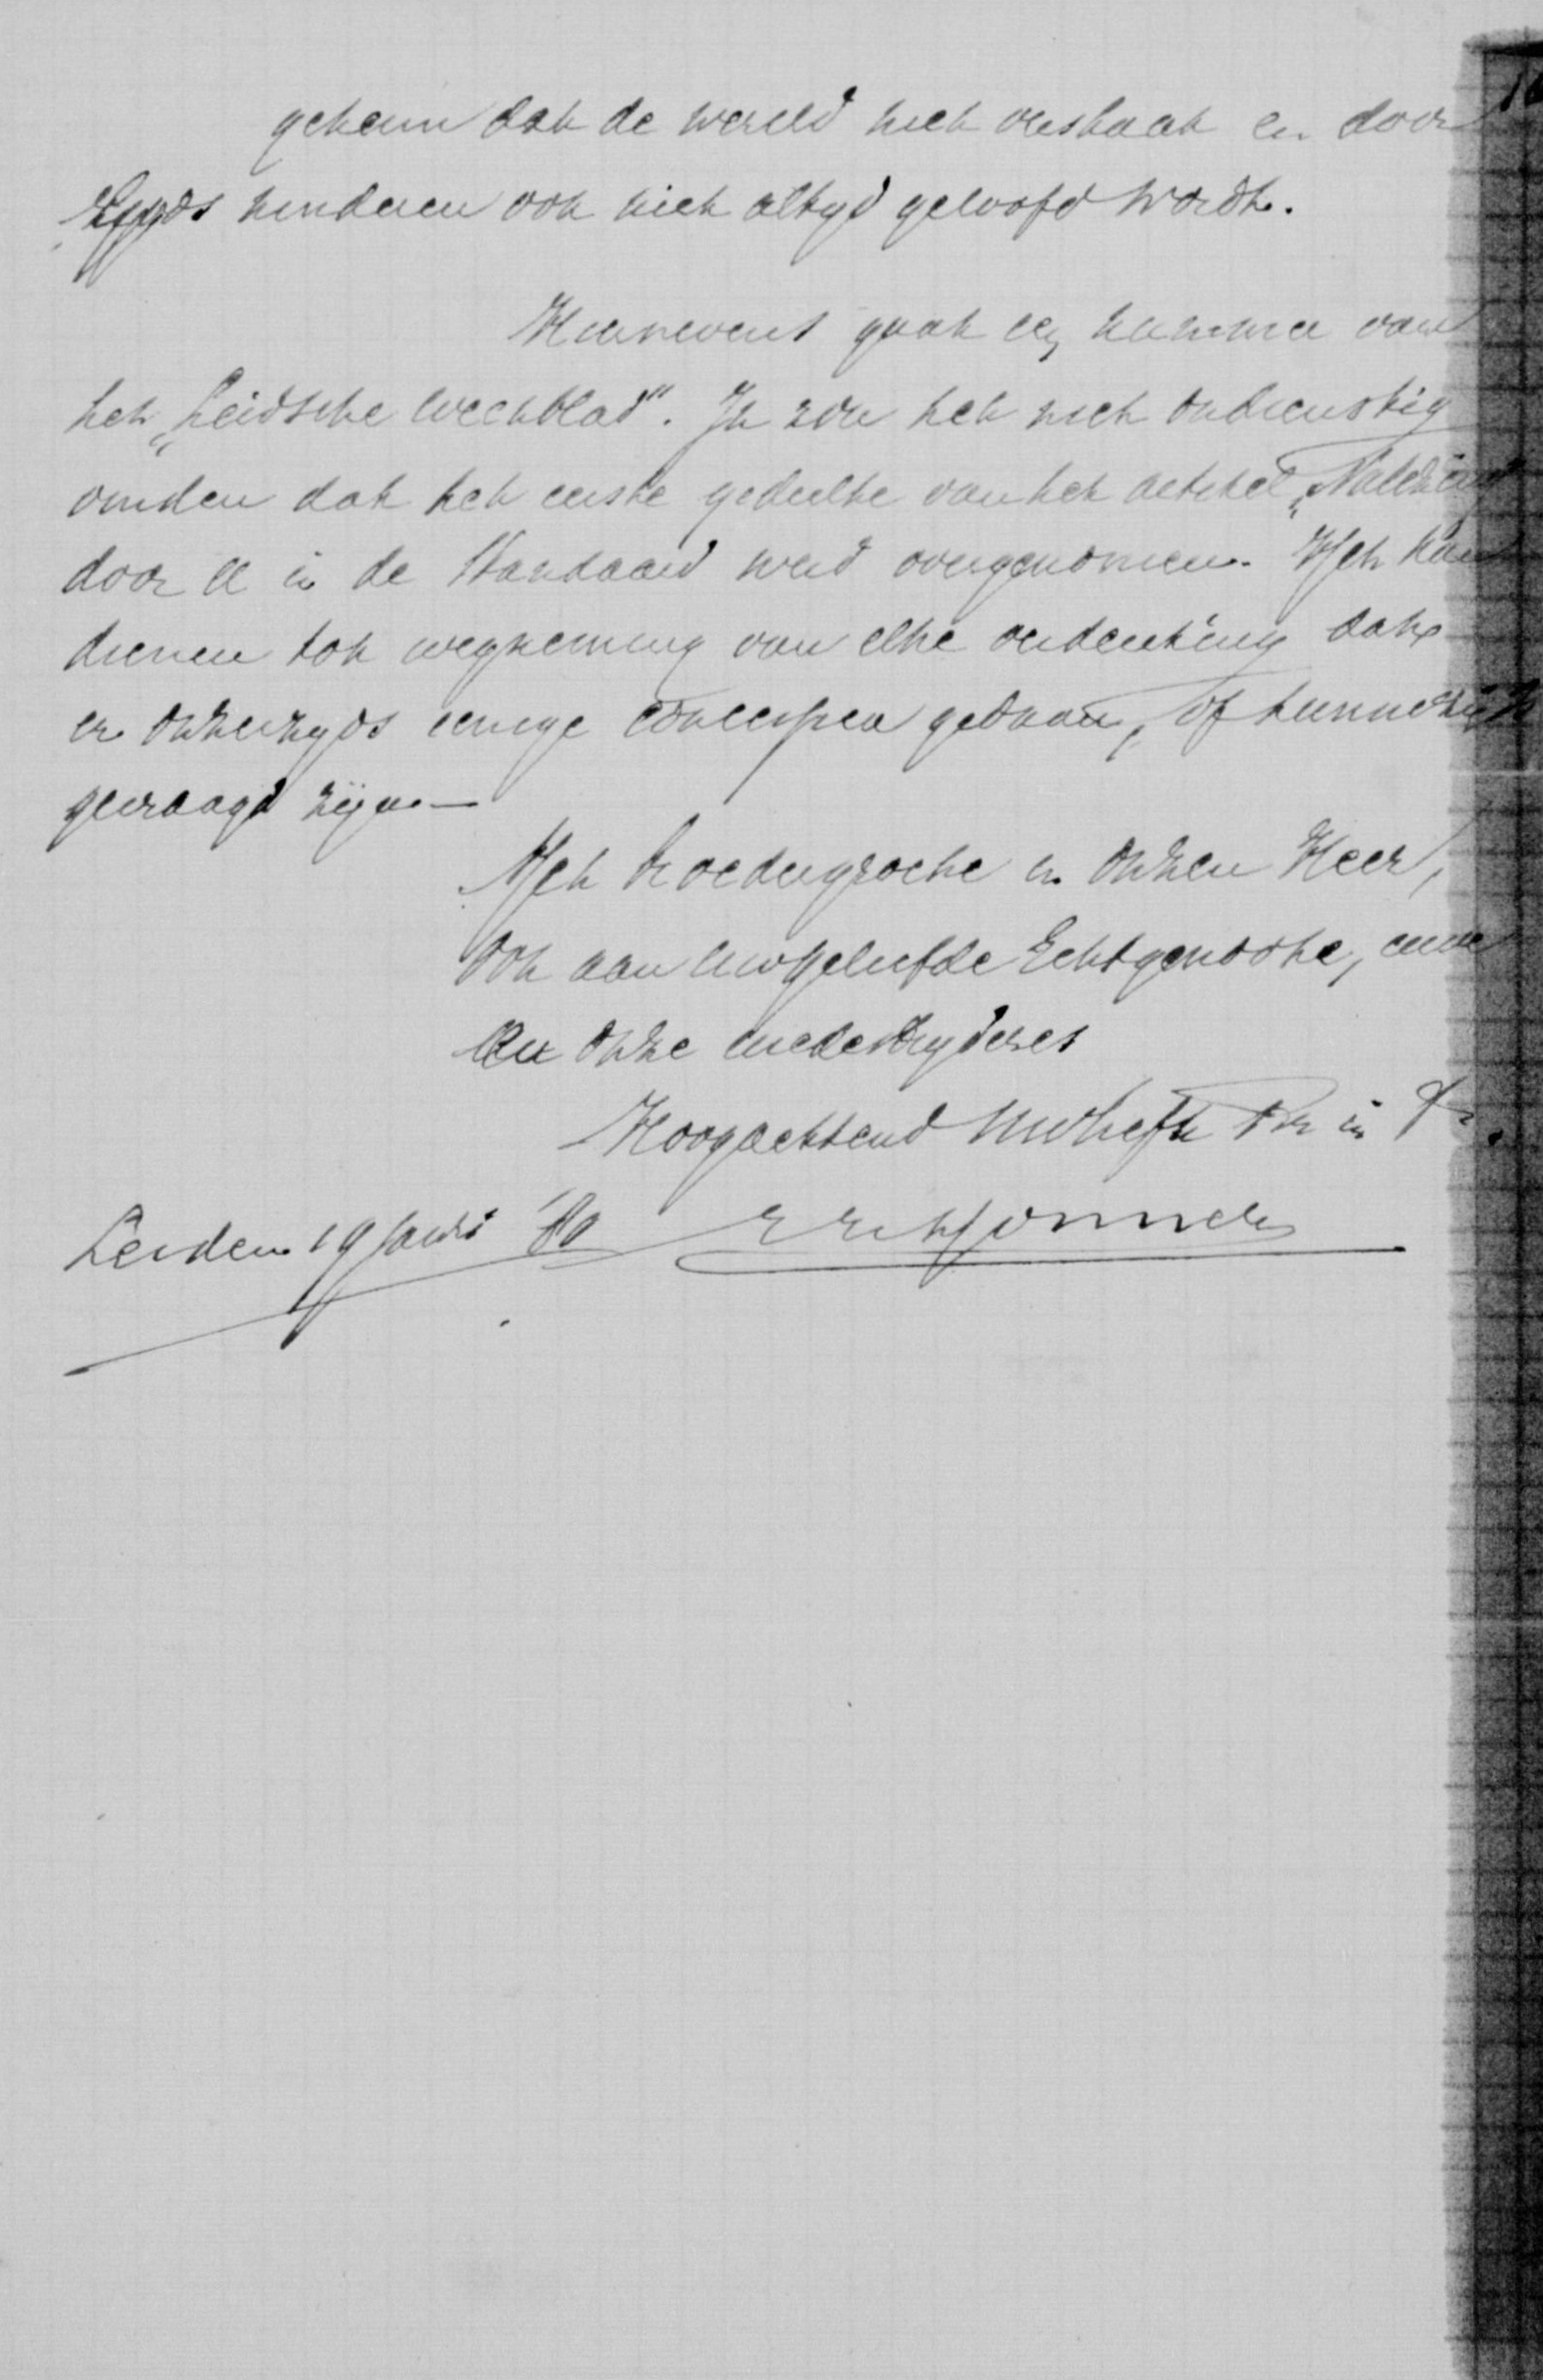 geheim dat de wereld niet verstaat en door
Gods kinderen ook niet altyd geloofd wordt.
Hiernevens gaat een nummer van
het „Leidsche Weekblad". Ik zou het niet ondienstig
vinden dat het eerste gedeelte van het artikel
door U in de Standaard werd overgenomen. Het kan
dienen tot wegneming van elke verdenking dat
er onzerzyds eenige concessien gedaan, of hunnerzijds
gevraagd zijn.—
Met broedergroete in onzen Heer,
ook aan Uw geliefde Echtgenoote,
onze medestrijderes
Hoogachtend Uw in
Leiden 19 '80 Donner